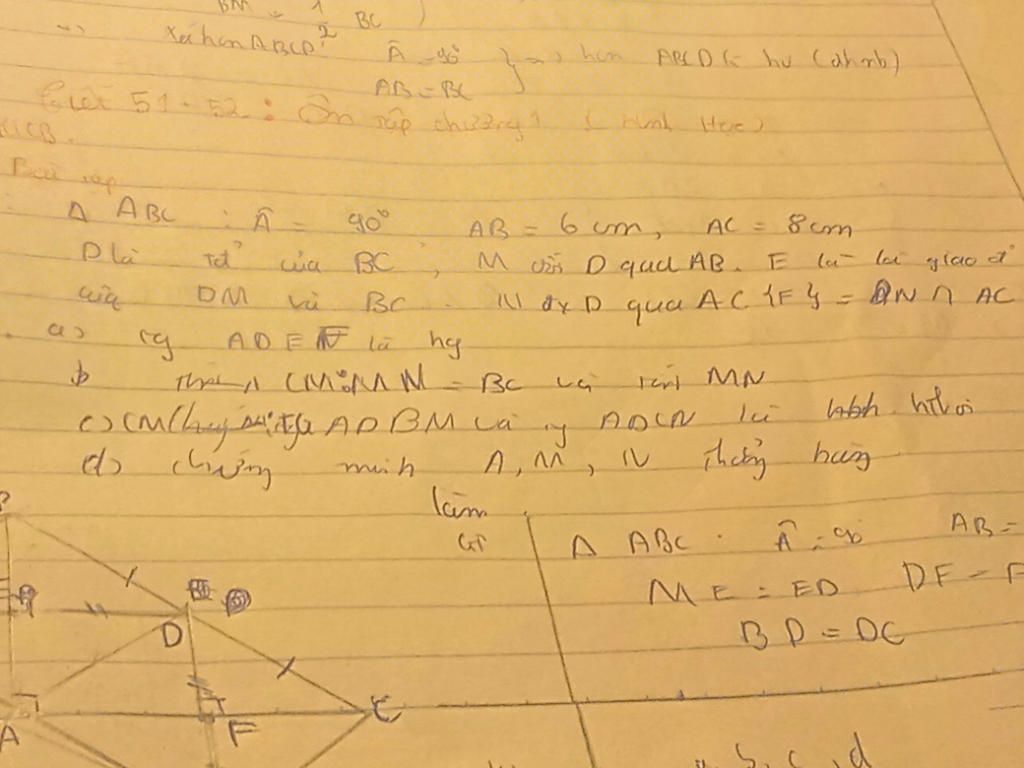 BM = 1/2 BC )
Xét hcn ABCD: Â = 90° } => hcn ABCD là hv (dhnb)
AB = BC
Tiết 51 - 52 : Ôn tập chương 1 ( Hình Học )
Bài tập
Δ ABC : Â = 90° AB = 6 cm, AC = 8cm
D là tđ của BC , M đx D qua AB. E là là giao đ
của DM và BC . N đx D qua AC {F} = DN ∩ AC
a) tg ADEF là hg
b MN = BC và MN
c) CM tg ADBM và tg ADCN là hbh hthoi
d) chứng minh A, M, N thẳng hàng
làm
GT Δ ABC . Â = 90 AB =
ME = ED DF = F
BD = DC
B
D
A
F
C
b, c, d